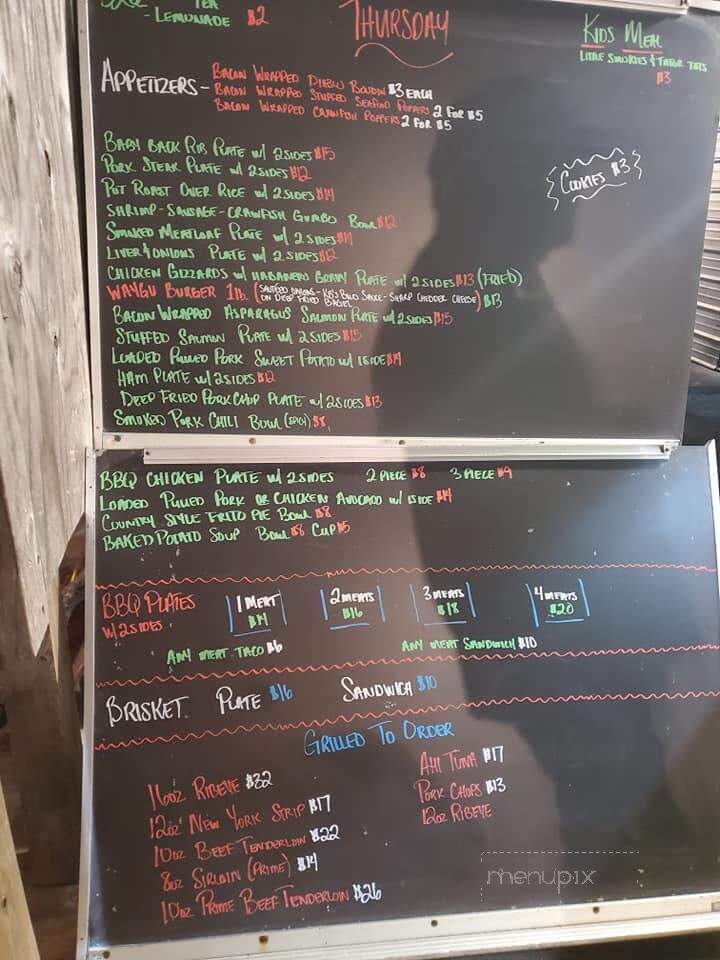 TEA
- LEMONADE $2
THURSDAY
KIDS MEAL
LITTLE SMOKIES & TATOR TOTS
$3
APPETIZERS - BACON WRAPPED DIABLO BOUDIN $3 EACH
BACON WRAPPED STUFFED SEAFOOD POPPERS 2 FOR $5
BACON WRAPPED CRAWFISH POPPERS 2 FOR $5
COOKIES $3
BABY BACK RIB PLATE w/ 2 SIDES $15
PORK STEAK PLATE w/ 2 SIDES $12
POT ROAST OVER RICE w/ 2 SIDES $14
SHRIMP-SAUSAGE-CRAWFISH GUMBO BOWL $12
SMOKED MEATLOAF PLATE w/ 2 SIDES $14
LIVER & ONIONS PLATE w/ 2 SIDES $12
CHICKEN GIZZARDS w/ HABANERO GRAVY PLATE w/ 2 SIDES $13 (FRIED)
WAYGU BURGER 1lb. (SAUTEED ONIONS - BBQ SAUCE - SHARP CHEDDER CHEESE) $13
ON DEEP FRIED BAGEL
BACON WRAPPED ASPARAGUS SALMON PLATE w/ 2 SIDES $15
STUFFED SALMON PLATE w/ 2 SIDES $15
LOADED PULLED PORK SWEET POTATO w/ 1 SIDE $14
HAM PLATE w/ 2 SIDES $12
DEEP FRIED PORK CHOP PLATE w/ 2 SIDES $13
SMOKED PORK CHILI BOWL (SPICY) $8
BBQ CHICKEN PLATE w/ 2 SIDES 2 PIECE $8 3 PIECE $9
LOADED PULLED PORK OR CHICKEN AVOCADO w/ 1 SIDE $14
COUNTRY STYLE FRITO PIE BOWL $8
BAKED POTATO SOUP BOWL $8 CUP $5
BBQ PLATES
W/ 2 SIDES
1 MEAT
$14
2 MEATS
$16
3 MEATS
$18
4 MEATS
$20
ANY MEAT TACO $6
ANY MEAT SANDWICH $10
BRISKET PLATE $16 SANDWICH $10
GRILLED TO ORDER
16oz RIBEYE $32
12oz NEW YORK STRIP $17
10oz BEEF TENDERLOIN $22
8oz SIRLOIN (PRIME) $14
10oz PRIME BEEF TENDERLOIN $26
AHI TUNA $17
PORK CHOPS $13
12oz RIBEYE
menupix